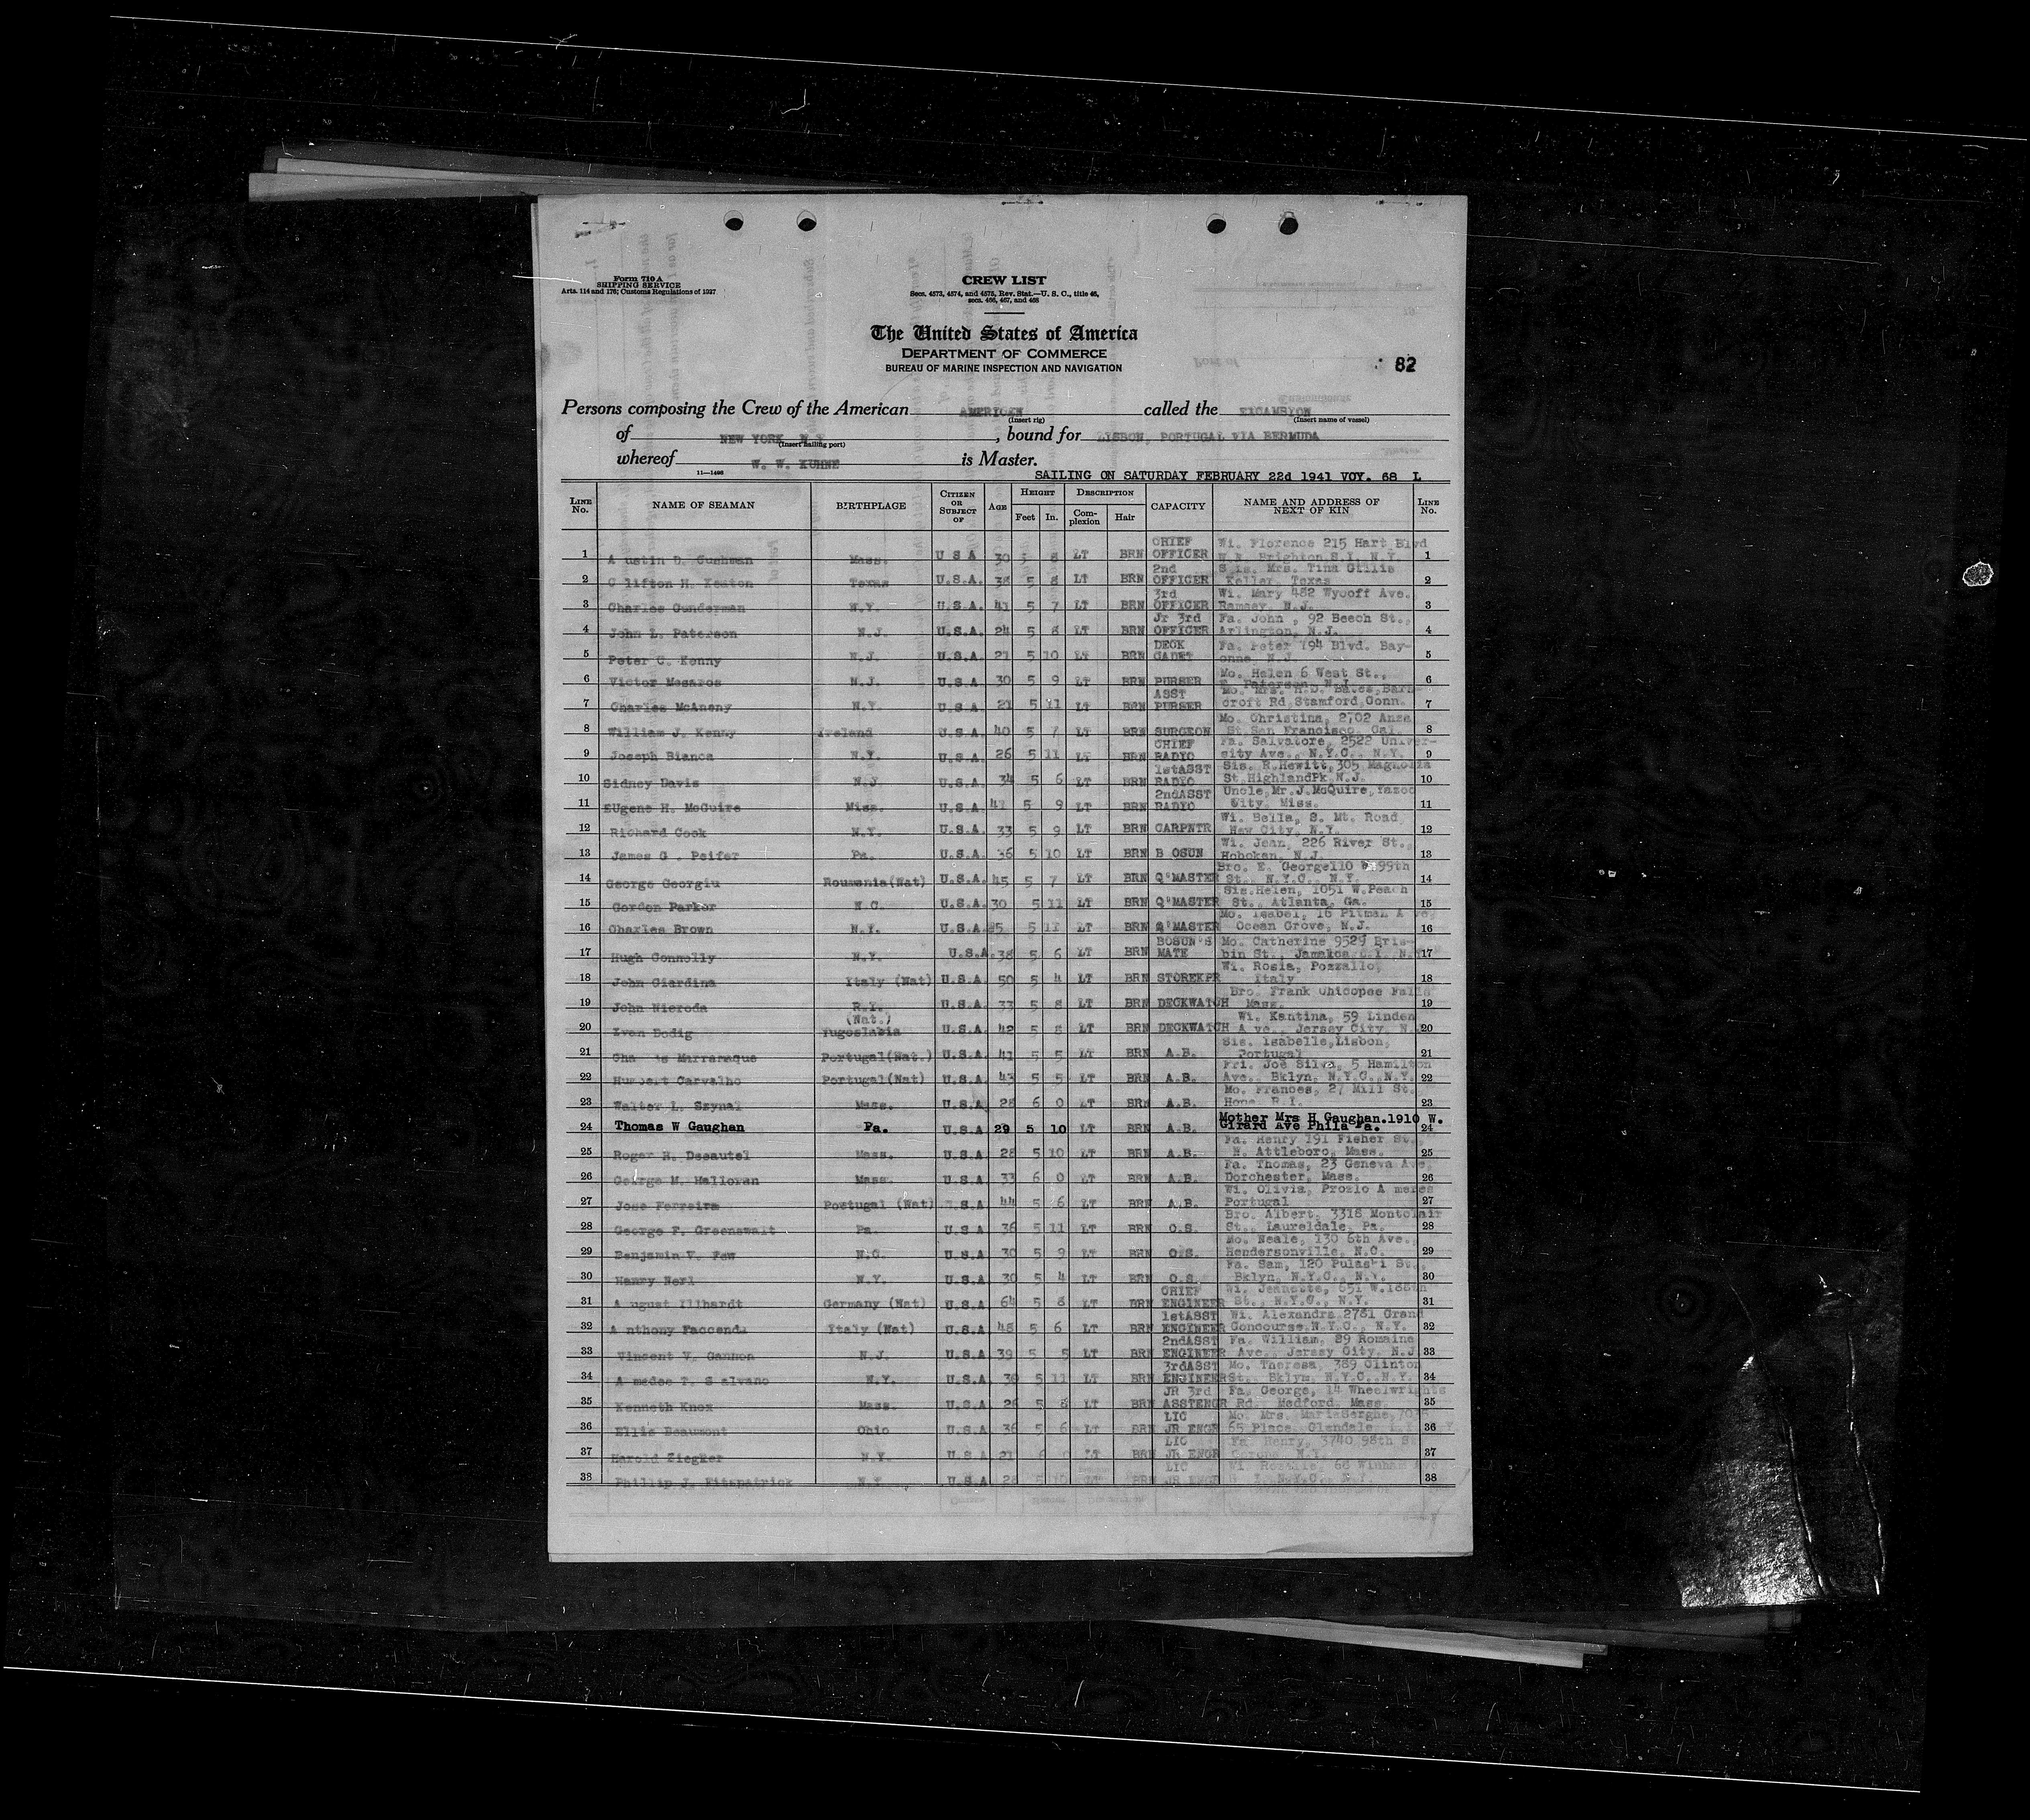 Form 710 A
SHIPPING SERVICE
Arts. 114 and 176; Customs Regulations of 1937
CREW LIST
Secs. 4573, 4574, and 4575, Rev. Stat.—U. S. C., title 46,
secs. 466, 467, and 468
The United States of America
DEPARTMENT OF COMMERCE
BUREAU OF MARINE INSPECTION AND NAVIGATION
82
Persons composing the Crew of the American AMERICAN called the EXCAMBION
(Insert rig) (Insert name of vessel)
of NEW YORK, N.Y. , bound for LISBON, PORTUGAL VIA BERMUDA
(Insert sailing port)
whereof W. W. KUHNE is Master.
11—1498
SAILING ON SATURDAY FEBRUARY 22d 1941 VOY. 68 L
LINE No. NAME OF SEAMAN BIRTHPLACE CITIZEN OR SUBJECT OF AGE HEIGHT Feet In. DESCRIPTION Complexion Hair CAPACITY NAME AND ADDRESS OF NEXT OF KIN LINE No.
1 A ustin D. Cushman Mass. U S A 30 5 8 LT BRN CHIEF OFFICER Wi. Florence 215 Hart Blvd Brighton S.I. N.Y. 1
2 C lifton H. Keaton Texas U.S.A. 38 5 8 LT BRN 2nd OFFICER S is. Mrs. Tina Gillis Keller, Texas 2
3 Charles Gunderman N.Y. U.S.A. 41 5 7 LT BRN 3rd OFFICER Wi. Mary 482 Wycoff Ave. Ramsey, N.J. 3
4 John L. Paterson N.J. U.S.A. 24 5 8 LT BRN Jr 3rd OFFICER Fa. John , 92 Beech St., Arlington, N.J. 4
5 Peter C. Kenny N.J. U.S.A. 21 5 10 LT BRN DECK CADET Fa. Peter 794 Blvd. Bay- onne, N.J. 5
6 Victor Mesaros N.J. U.S.A 30 5 9 LT BRN PURSER Mo. Helen 6 West St., E. Paterson N.J. 6
7 Charles McAneny N.Y. U.S.A 21 5 11 LT BRN ASST PURSER Mo. Mrs. H.D. Bates, Barn- croft Rd, Stamford, Conn. 7
8 William J. Kenny Ireland U.S.A. 40 5 7 LT BRN SURGEON Mo. Christina, 2702 Anza St San Francisco, Cal. 8
9 Joseph Bianca N.Y. U.S.A. 26 5 11 LT BRN CHIEF RADIO Fa. Salvatore, 2522 Univer- sity Ave., N.Y.C., N.Y. 9
10 Sidney Davis N.J U.S.A. 34 5 6 LT BRN 1stASST RADIO Sis. R.Hewitt, 305 Magnolia St HighlandPk N.J. 10
11 EUgene H. McGuire Miss. U.S.A 41 5 9 LT BRN 2ndASST RADIO Uncle, Mr.J.McQuire, Yazoo City, Miss. 11
12 Richard Cook N.Y. U.S.A. 33 5 9 LT BRN CARPNTR Wi. Bella, S. Mt. Road New City, N.Y. 12
13 James G . Peifer Pa. U.S.A. 36 5 10 LT BRN B OSUN Wi. Jean, 226 River St., Hoboken, N.J. 13
14 George Georgiu Roumania(Nat) U.S.A. 45 5 7 LT BRN Q'MASTER Bro. E. George110 W 99th St., N.Y.C., N.Y. 14
15 Gordon Parker N.C. U.S.A. 30 5 11 LT BRN Q'MASTER Sis.Helen, 1051 W.Peach St., Atlanta, Ga. 15
16 Charles Brown N.Y. U.S.A. 5 11 LT BRN Q'MASTER Mo. Isabel, 16 Pitman A ve, Ocean Grove, N.J. 16
17 Hugh Connolly N.Y. U.S.A. 38 5 6 LT BRN BOSUN'S MATE Mo. Catherine 9529 Bris- bin St., Jamaica 17
18 John Giardina Italy (Nat) U.S.A 50 5 4 LT BRN STOREKPR Wi. Rosia, Pozzallo, Italy 18
19 John Nieroda R.I. U.S.A 33 5 8 LT BRN DECKWATCH Bro. Frank Chicopee Falls Mass. 19
20 Ivan Dodig (Nat.) Yugoslabia U.S.A 42 5 8 LT BRN DECKWATCH Wi. Kantina, 59 Linden A ve., Jersey City, N. 20
21 Marramaque Portugal(Nat.) U.S.A 41 5 5 LT BRN A.B. Sis. Isabelle, Lisbon, Portugal 21
22 Humbert Carvalho Portugal(Nat) U.S.A. 43 5 5 LT BRN A.B. Fri. Joe Silva, 5 Hamilton Ave., Bklyn, N.Y.C., N.Y. 22
23 Walter L. Szynal Mass. U.S.A 28 6 0 LT BRN A.B. Mo. Frances, 27 Mill St. Hope, R.I. 23
24 Thomas W Gaughan Pa. U.S.A 29 5 10 LT BRN A.B. Mother Mrs H Gaughan.1910 W. Girard Ave Phila Pa. 24
25 Roger H. Desautel Mass. U.S.A 28 5 10 LT BRN A.B. Fa. Henry 191 Fisher St., N. Attleboro, Mass. 25
26 George M. Halloran Mass. U.S.A 33 6 0 LT BRN A.B. Fa. Thomas, 23 Geneva Ave, Dorchester, Mass. 26
27 Jose Ferreira Portugal (Nat) U.S.A 44 5 6 LT BRN A.B. Wi. Olivia, Prozlo A meres Portugal 27
28 George F. Greenswalt Pa. U.S.A 36 5 11 LT BRN O.S. Bro. Albert, 3318 Montclair St., Laureldale, Pa. 28
29 Benjamin V. Few N.C. U.S.A 30 5 9 LT BRN O.S. Mo. Neale, 130 6th Ave., Hendersonville, N.C. 29
30 Henry Nerl N.Y. U.S.A 30 5 4 LT BRN O.S. Fa. Sam, 120 Pulaski St., Bklyn, N.Y.C., N.Y. 30
31 A ugust Illhardt Germany (Nat) U.S.A 64 5 8 LT BRN CHIEF ENGINEER Wi. Jeanette, 651 W.188th St., N.Y.C., N.Y. 31
32 A nthony Faccenda Italy (Nat) U.S.A 48 5 6 LT BRN 1stASST ENGINEER Wi. Alexandra 2781 Grand Concourse, N.Y.C., N.Y. 32
33 Vincent V. Gannon N.J. U.S.A 39 5 5 LT BRN 2ndASST ENGINEER Fa. William, 89 Romaine Ave., Jersey City, N.J 33
34 A medee T. S alvano N.Y. U.S.A 30 5 11 LT BRN 3rdASST ENGINEER Mo. Theresa, 389 Clinton St., Bklyn, N.Y.C., N.Y. 34
35 Kenneth Knox Mass. U.S.A 26 5 8 LT BRN JR 3rd ASSTENGR Fa. George, 14 Wheelwrights Rd. Medford, Mass. 35
36 Ellis Beaumont Ohio U.S.A 36 5 6 LT BRN LIC JR ENGR Mo. Mrs. MarieSerghe, 65 Place, Glendale 36
37 Harold Ziegker N.Y. U.S.A 21 6 LT BRN LIC JR ENGR Fa. Henry, 3740 98th St Corona, N.Y. 37
38 Phillip J. Fitzpatrick N.Y. U.S.A 28 5 10 LT BRN LIC JR ENGR Wi. Rosalie, 68 Winham Ave S. I. N.Y.C., N.Y. 38